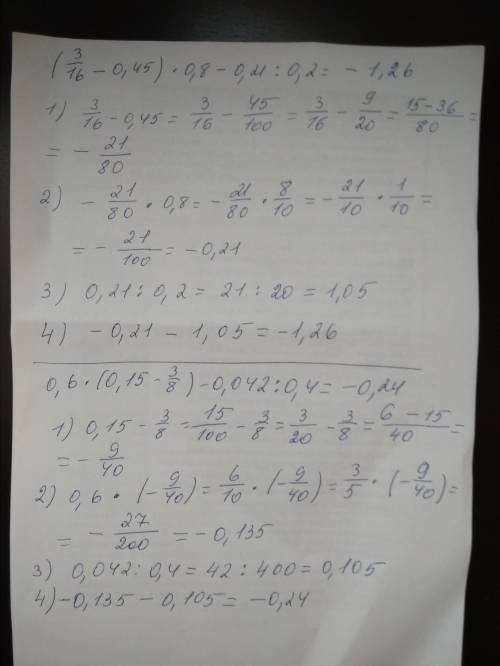 (3/16 - 0,45) · 0,8 - 0,21 : 0,2 = - 1,26
1) 3/16 - 0,45 = 3/16 - 45/100 = 3/16 - 9/20 = 15-36/80 =
= - 21/80
2) - 21/80 · 0,8 = - 21/80 · 8/10 = - 21/10 · 1/10 =
= - 21/100 = -0,21
3) 0,21 : 0,2 = 21 : 20 = 1,05
4) -0,21 - 1,05 = -1,26
0,6 · (0,15 - 3/8) - 0,042 : 0,4 = -0,24
1) 0,15 - 3/8 = 15/100 - 3/8 = 3/20 - 3/8 = 6-15/40 =
= - 9/40
2) 0,6 · (- 9/40) = 6/10 · (- 9/40) = 3/5 · (- 9/40) =
= - 27/200 = -0,135
3) 0,042 : 0,4 = 42 : 400 = 0,105
4) -0,135 - 0,105 = -0,24